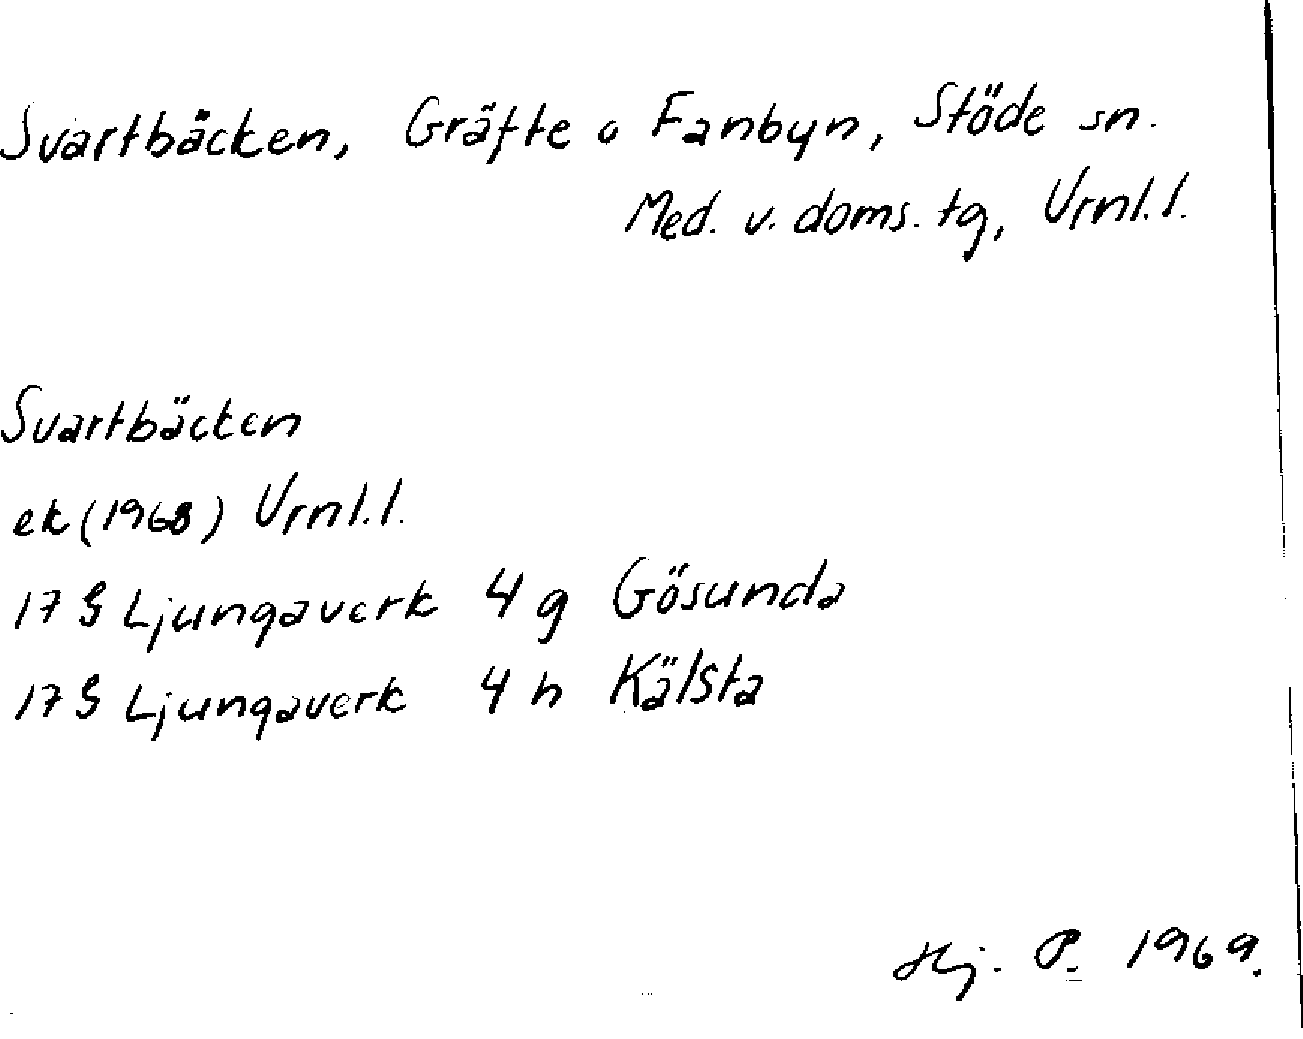 Svartbäcken, Gräfte o Fanbyn, Stöde sn.
Med. v. doms. tg, Vrnl. l.
Svartbäcken
ek (1968) Vrnl. l.
17 G Ljungaverk 4 g Gösunda
17 G Ljungaverk 4 h Kälsta
Hj. P. 1969.